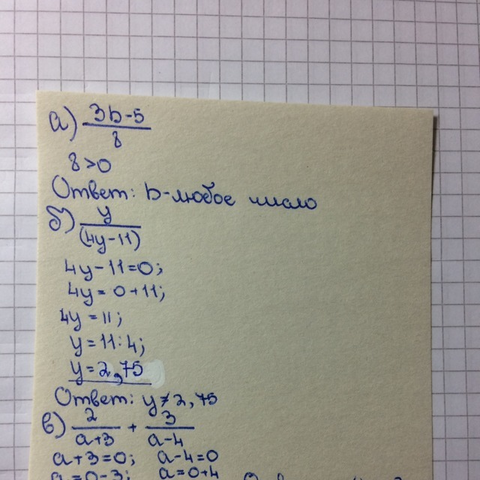 а) 3b-5
8
8>0
Ответ: b-любое число
б) y
(4y-11)
4y-11=0;
4y= 0+11;
4y = 11;
y= 11:4;
y= 2,75
Ответ: y≠2,75
в) 2/a+3 + 3/a-4
a+3=0; a-4=0
a=0-3; a=0+4